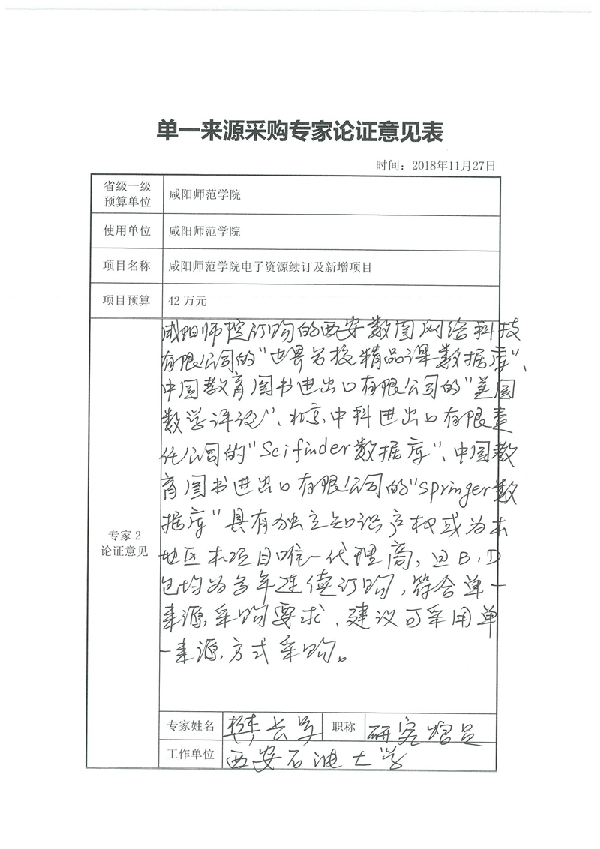 单一来源采购专家论证意见表
时间：2018年11月27日
省级一级
预算单位
咸阳师范学院
使用单位
咸阳师范学院
项目名称
咸阳师范学院电子资源续订及新增项目
项目预算
42万元
专家2
论证意见
咸阳师院订购的西安数图网络科技
有限公司的"世界名校精品课数据库"、
中国教育图书进出口有限公司的"美国
数学评论"、北京中科进出口有限责
任公司的"Scifinder数据库"、中国教
育图书进出口有限公司的"springer数
据库"具有独立知识产权或为本
地区本项目唯一代理商，且B、D
包均为多年连续订购，符合单一
来源采购要求，建议可采用单
一来源方式采购。
专家姓名
樊长军
职称
研究馆员
工作单位
西安石油大学